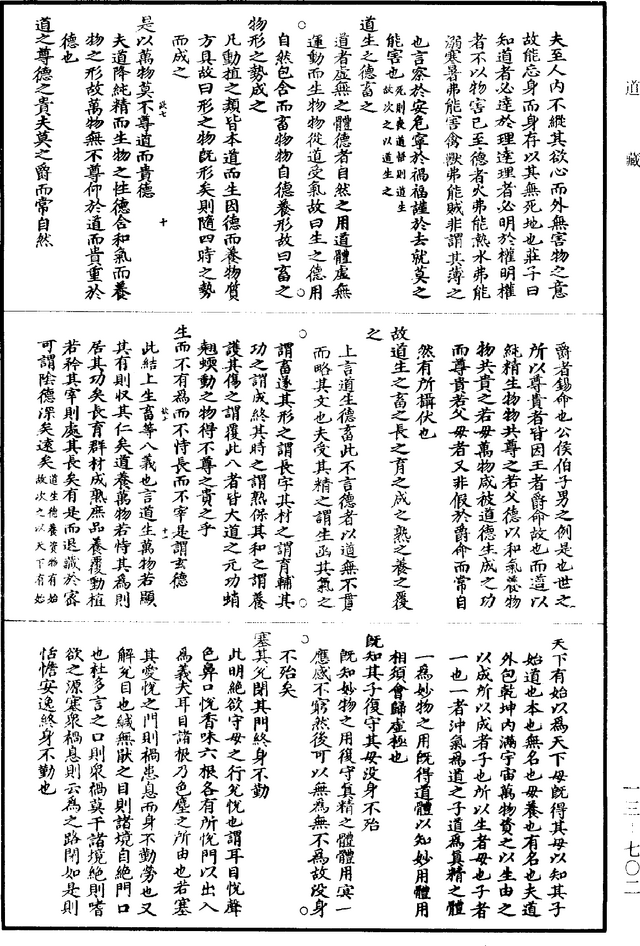 道藏
夫至人内不縱其欲心而外無害物之意
故能忘身而身存以其無死地也莊子曰
知道者必達於理達理者必明於權明權
者不以物害己至德者火弗能熱水弗能
溺寒暑弗能害禽獸弗能賊非謂其薄之
也言察於安危寧於禍福謹於去就莫之
能害也死則喪道悟則道生故次之以道生之
道生之德畜之
道者虛無之體德者自然之用道體虛無
運動而生物物從道受氣故曰生之德用
自然包含而畜物物自德養形故曰畜之
物形之勢成之
凡動植之類皆本道而生因德而養物質
方具故曰形之物旣形矣則隨四時之勢
而成之
是以萬物莫不尊道而貴德
夫道降純精而生物之性德含和氣而養
物之形故萬物無不尊仰於道而貴重於
德也
道之尊德之貴夫莫之爵而常自然
十
爵者錫命也公侯伯子男之例是也世之
所以尊貴者皆因王者爵命故也而道以
純精生物物共尊之若父德以和氣養物
物共貴之若母萬物咸被道德生成之功
而尊貴若父母者又非假於爵命而常自
然有所攝伏也
故道生之畜之長之育之成之熟之養之覆
之
上言道生德畜此不言德者以道無不貫
而略其文也夫受其精之謂生函其氣之
謂畜遂其形之謂長字其材之謂育輔其
功之謂成終其時之謂熟保其和之謂養
護其傷之謂覆此八者皆大道之元功蛸
翹蝡動之物得不尊之貴之乎
生而不有爲而不恃長而不宰是謂玄德
此結上生畜等八義也言道生萬物若顯
其有則収其仁矣道養萬物若恃其爲則
居其功矣長育群材成熟庶品養覆動植
若矜其宰則處其長矣有是而退藏於密
可謂陰德深矣遠矣道生德養資物有始故次之以天下有始
十一
天下有始以爲天下母旣得其母以知其子
始道也本也無名也母養也有名也夫道
外包乾坤内滿宇宙萬物資之以生由之
以成所以成者子也所以生者母也子者
一也一者沖氣爲道之子道爲眞精之體
一爲妙物之用旣得道體以知妙用體用
相須會歸虛極也
旣知其子復守其母没身不殆
旣知妙物之用復守眞精之體體用冥一
應感不窮然後可以無爲無不爲故没身
不殆矣
塞其兌閉其門終身不勤
此明絶欲守母之行兌悅也謂耳目悅聲
色鼻口悅香味六根各有所悅門以出入
爲義夫耳目諸根乃色塵之所由也若塞
其愛悅之門則禍患息而身不勤勞也又
解兌目也緘無猒之目則諸境自絶門口
也杜多言之口則衆禍莫干諸境絶則嗜
欲之源塞衆禍息則云爲之路閉如是則
恬憺安逸終身不勤也
一三·七〇二